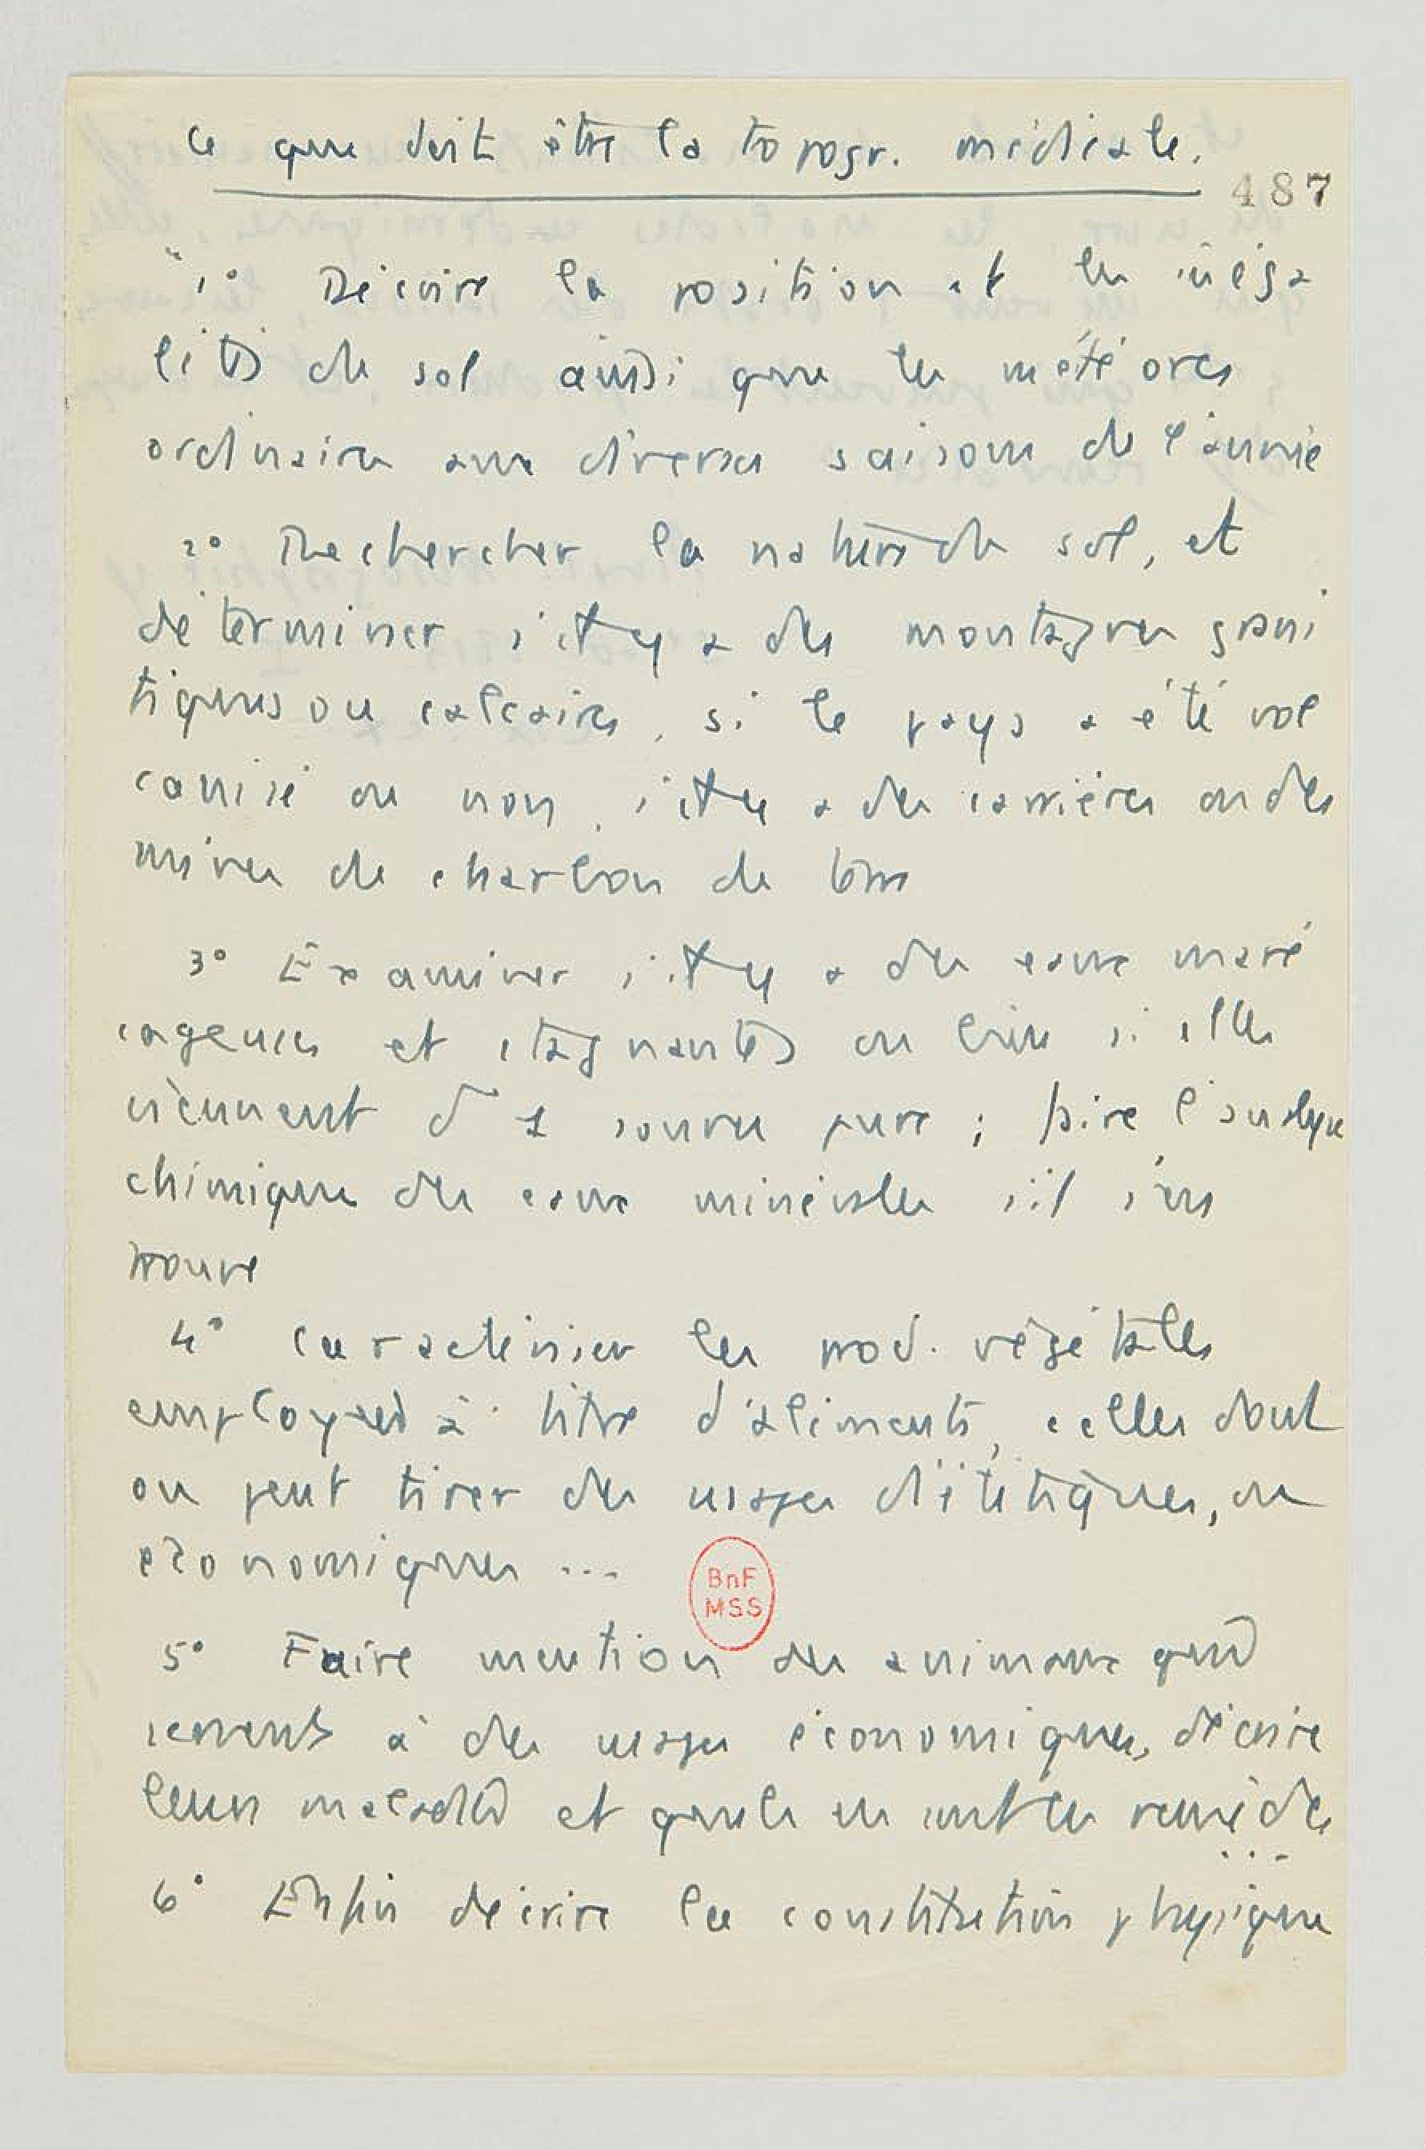 Ce que doit être la topogr. médicale.
487
"1° Décrire la position et les inéga
lités du sol ainsi que les météores
ordinaires aux diverses saisons de l'année
2° Rechercher la nature du sol, et
déterminer s'il y a des montagnes grani
tiques ou calcaires, si le pays a été vol
canisé ou non, s'il y a des carrières ou des
mines de charbon de terre
3° Examiner s'il y a des eaux maré
cageuses et stagnantes ou bien si elles
viennent d 1 source pure ; faire l'analyse
chimique des eaux minérales s'il s'en
trouve
4° Caractériser les prod. végétales
employées à titre d'aliments, celles dont
on peut tirer des usages diététiques, ou
économiques ...
BnF
MSS
5° Faire mention des animaux qui
servent à des usages économiques, décrire
leurs maladies et quels en sont les remèdes
...
6° Enfin décrire la constitution physique